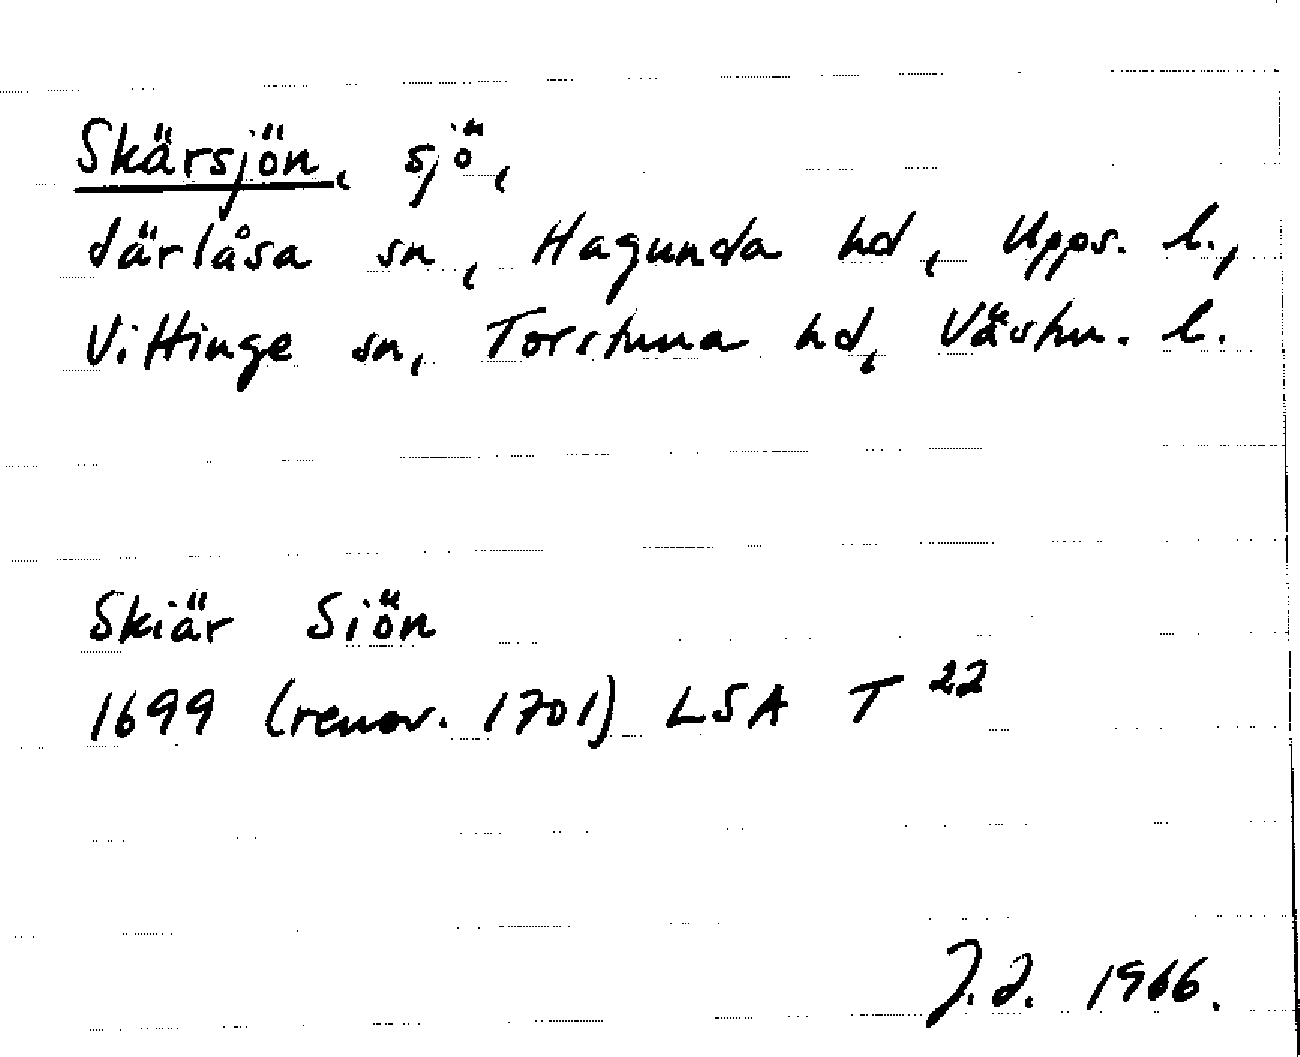 Skärsjön, sjö,
Järlåsa sn, Hagunda hd, Upps. l.,
Vittinge sn, Torstuna hd, Västm. l.
Skiär Siön
1699 (renov. 1701) LSA T 22
J.J. 1966.